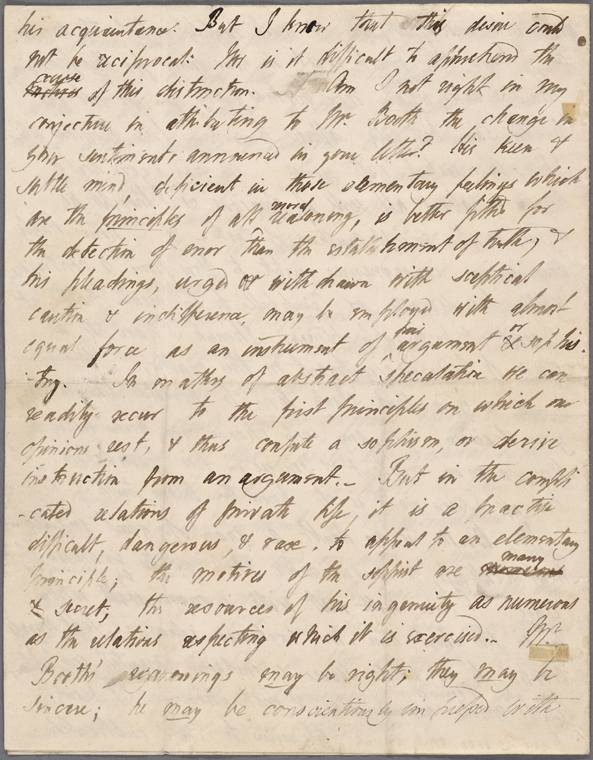 his acquaintance. But I know that this desire could
not be reciprocal: Nor is it difficult to apprehend the
cause of this distinction. Am I not right in my
conjecture in attributing to Mr. Booth the change in
your sentiments announced in your letter? his keen &
subtle mind deficient in those elementary feelings which
are the principles of all moral reasoning, is better fitted for
the detection of error than the establishment of truth; &
his pleadings, urged or withdrawn with sceptical
caution & indifference, may be employed with almost
equal force as an instrument of fair argument or sophis
try. In matters of abstract speculation we can
readily recur to the first principles on which our
opinions rest, & thus confute a sophism, or derive
instruction from an argument. – But in the compli
-cated relations of private life, it is a practise
difficult, dangerous, & rare, to appeal to an elementary
principle; the motives of the sophist are many
& secret, the resources of his ingenuity as numerous
as the relations respecting which it is exercised. – Mr
Booth's reasonings may be right; they may be
sincere; he may be conscientiously impressed with